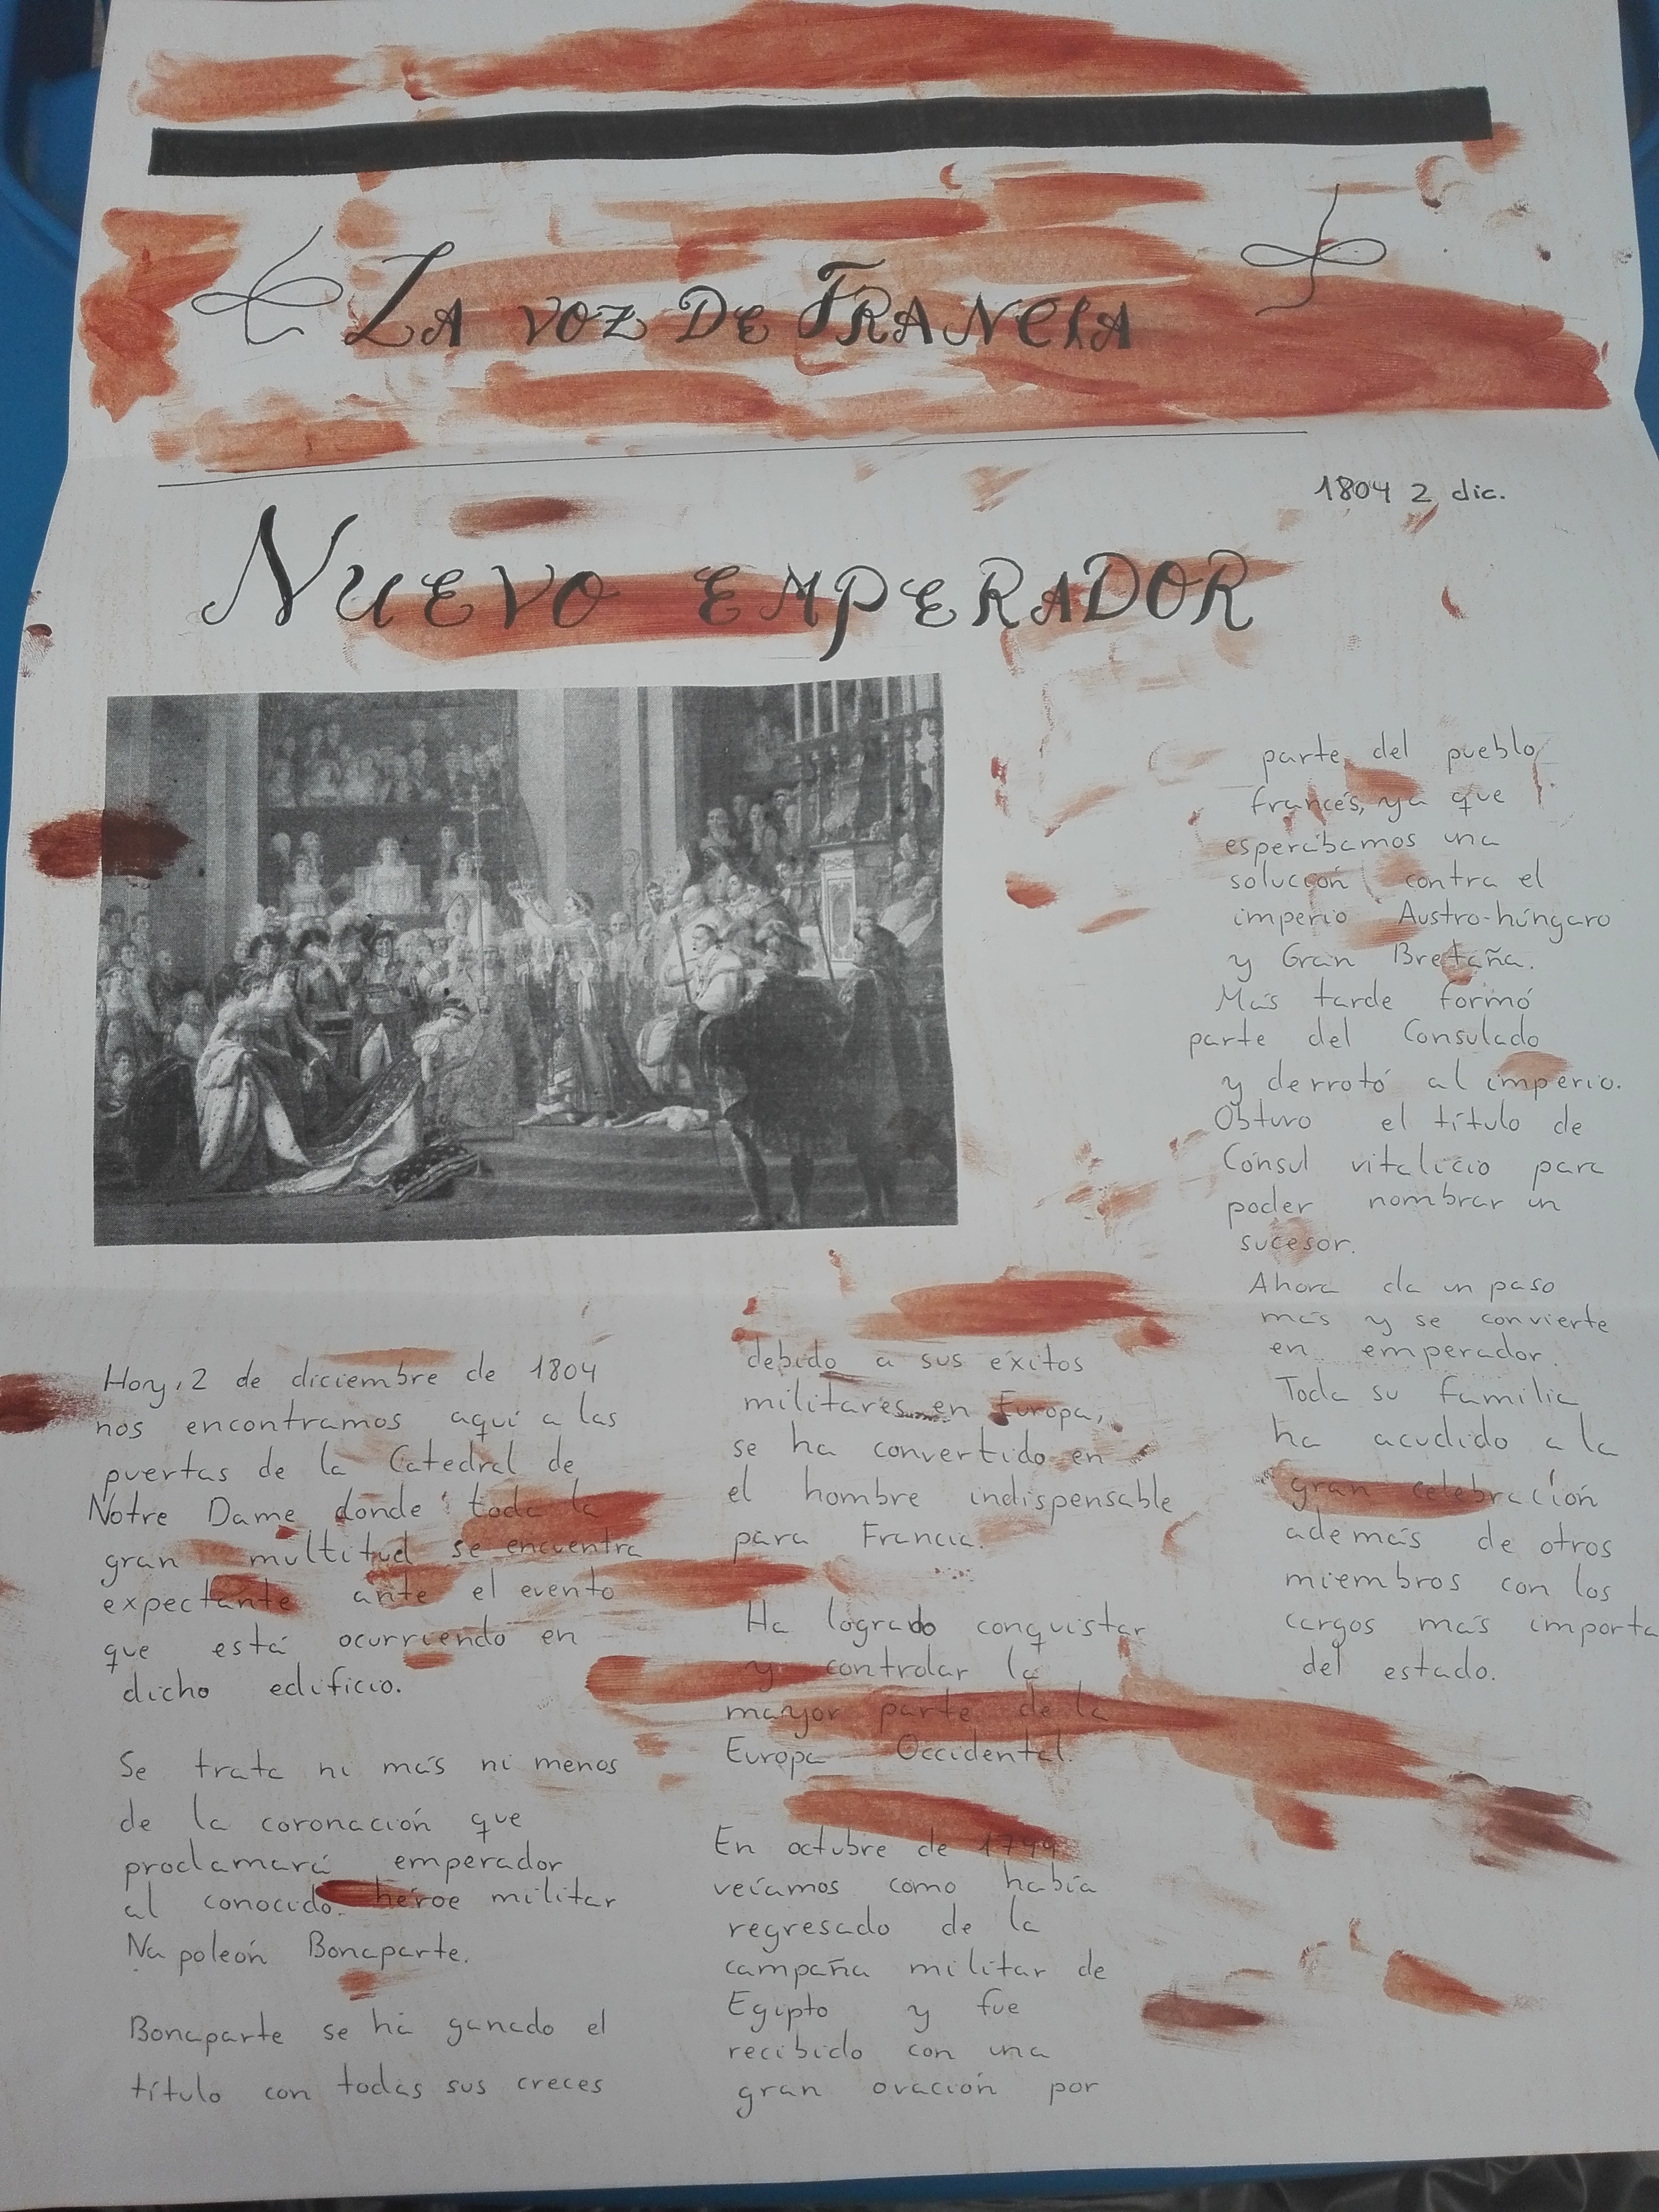 LA VOZ DE FRANCIA
1804 2 dic.
NUEVO EMPERADOR
Hoy, 2 de diciembre de 1804
nos encontramos aquí a las
puertas de la Catedral de
Notre Dame donde toda la
gran multitud se encuentra
expectante ante el evento
que está ocurriendo en
dicho edificio.
Se trata ni más ni menos
de la coronación que
proclamará emperador
al conocido héroe militar
Napoleón Bonaparte.
Bonaparte se ha ganado el
título con todas sus creces
debido a sus éxitos
militares en Europa,
se ha convertido en
el hombre indispensable
para Francia.
Ha logrado conquistar
y controlar la
mayor parte de la
Europa Occidental.
En octubre de 1799
veíamos como había
regresado de la
campaña militar de
Egipto y fue
recibido con una
gran ovación por
parte del pueblo
francés, ya que
esperábamos una
solución contra el
imperio Austro-húngaro
y Gran Bretaña.
Más tarde formó
parte del Consulado
y derrotó al imperio.
Obtuvo el título de
Cónsul vitalicio para
poder nombrar un
sucesor.
Ahora da un paso
más y se convierte
en emperador.
Toda su familia
ha acudido a la
gran celebración
además de otros
miembros con los
cargos más importa
del estado.